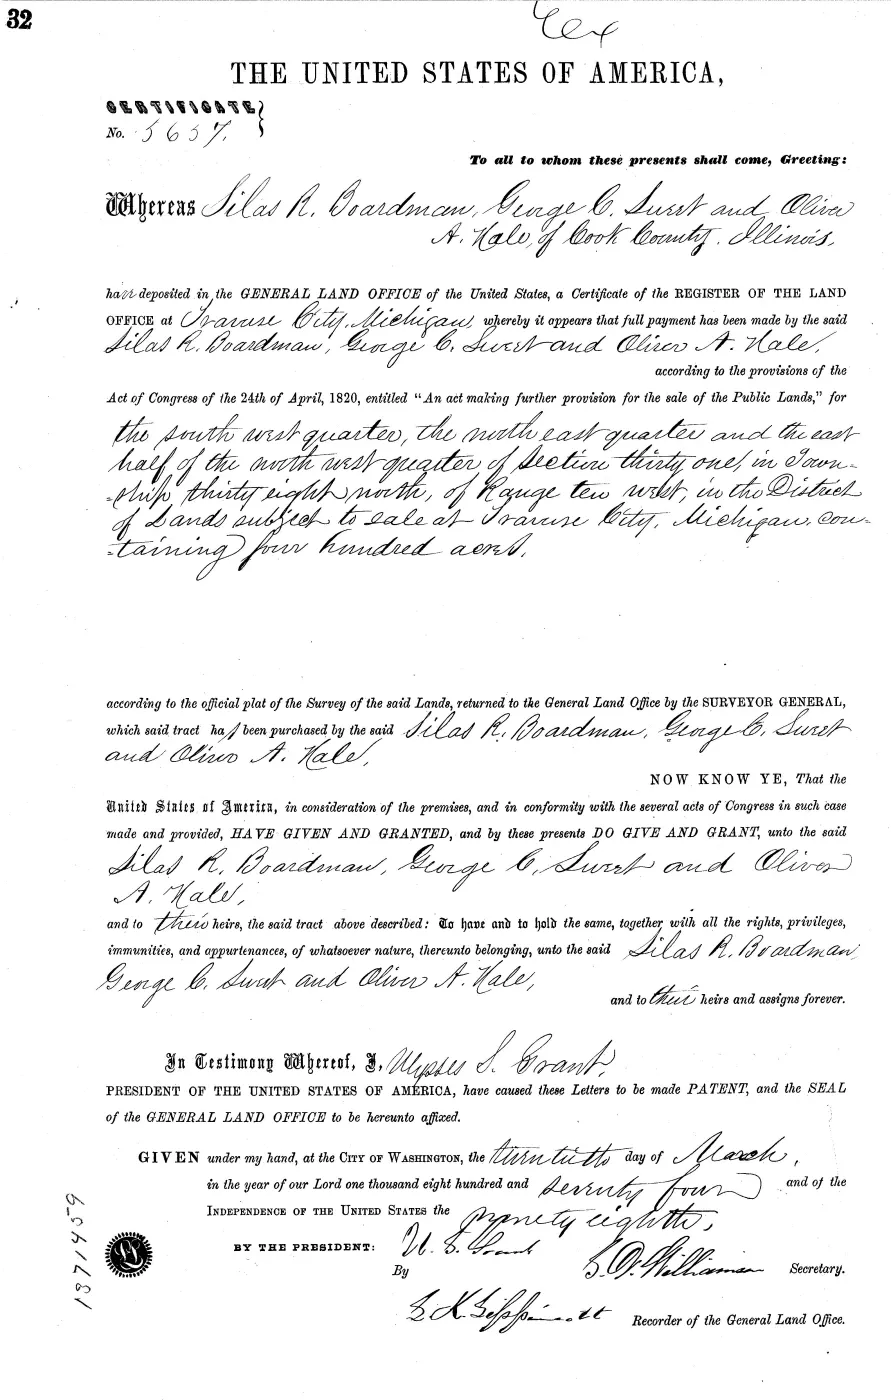 32
Ex
THE UNITED STATES OF AMERICA,
CERTIFICATE
No. 5657.
To all to whom these presents shall come, Greeting:
Whereas Silas R. Boardman, George C. Sweet and Oliver
A. Hale, of Cook County, Illinois,
have deposited in the GENERAL LAND OFFICE of the United States, a Certificate of the REGISTER OF THE LAND
OFFICE at Traverse City, Michigan, whereby it appears that full payment has been made by the said
Silas R. Boardman, George C. Sweet and Oliver A. Hale,
according to the provisions of the
Act of Congress of the 24th of April, 1820, entitled "An act making further provision for the sale of the Public Lands," for
the south west quarter, the north east quarter and the east
half of the north west quarter of Section thirty one, in Town-
-ship thirty eight north, of Range ten west, in the District
of Lands subject to sale at Traverse City, Michigan, con-
-taining four hundred acres.
according to the official plat of the Survey of the said Lands, returned to the General Land Office by the SURVEYOR GENERAL,
which said tract has been purchased by the said Silas R. Boardman, George C. Sweet
and Oliver A. Hale,
NOW KNOW YE, That the
United States of America, in consideration of the premises, and in conformity with the several acts of Congress in such case
made and provided, HAVE GIVEN AND GRANTED, and by these presents DO GIVE AND GRANT, unto the said
Silas R. Boardman, George C. Sweet and Oliver
A. Hale,
and to their heirs, the said tract above described: To have and to hold the same, together with all the rights, privileges,
immunities, and appurtenances, of whatsoever nature, thereunto belonging, unto the said Silas R. Boardman,
George C. Sweet and Oliver A. Hale,
and to their heirs and assigns forever.
In Testimony Whereof, I, Ulysses S. Grant,
PRESIDENT OF THE UNITED STATES OF AMERICA, have caused these Letters to be made PATENT, and the SEAL
of the GENERAL LAND OFFICE to be hereunto affixed.
GIVEN under my hand, at the CITY OF WASHINGTON, the twentieth day of March,
in the year of our Lord one thousand eight hundred and seventy four and of the
INDEPENDENCE OF THE UNITED STATES the ninety eighth,
BY THE PRESIDENT: U. S. Grant
By S. D. Williamson Secretary.
L. K. Lippincott Recorder of the General Land Office.
1371459